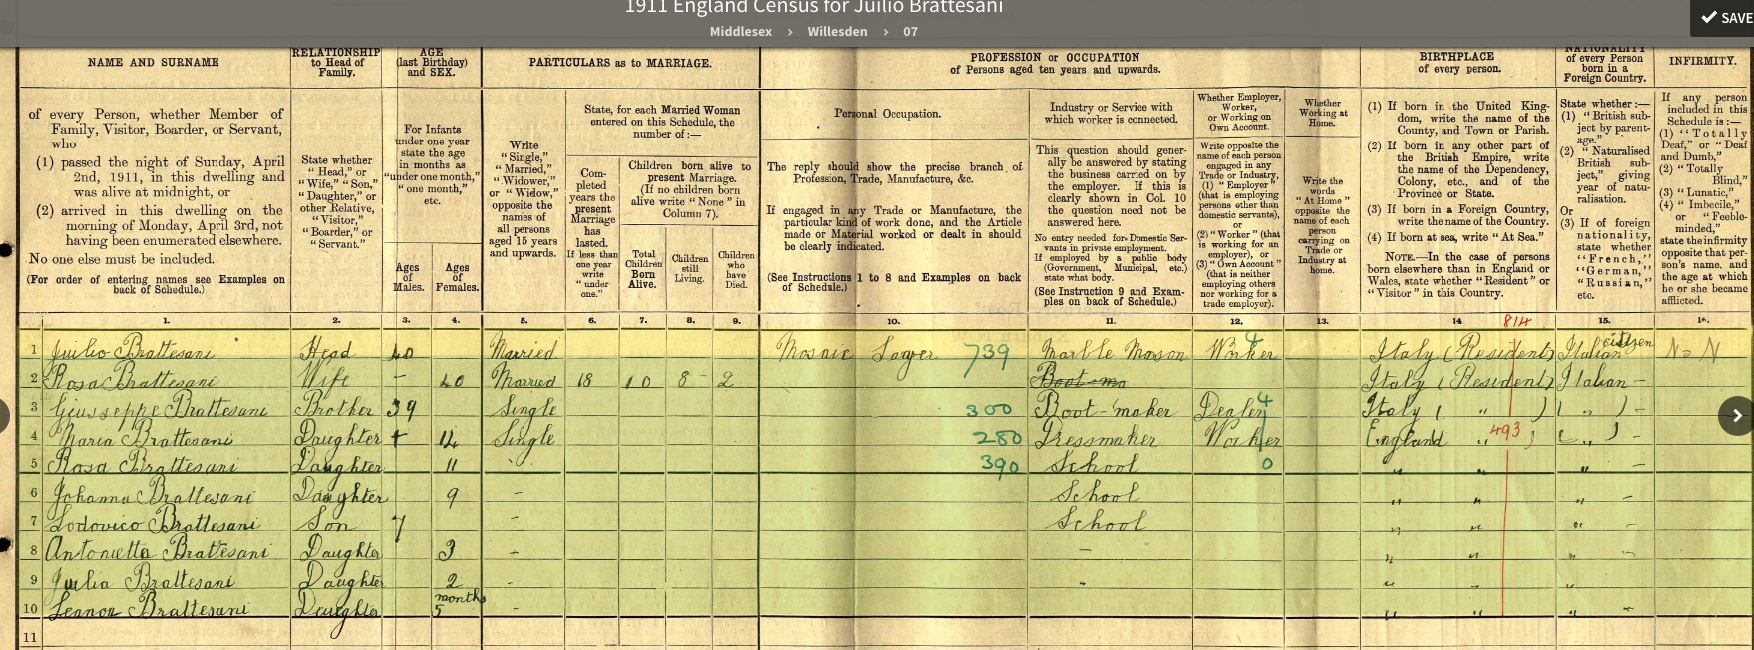 1911 England Census for Juilio Brattesani
Middlesex › Willesden › 07
SAVE
NAME AND SURNAME
RELATIONSHIP to Head of Family.
AGE (last Birthday) and SEX.
PARTICULARS as to MARRIAGE.
PROFESSION or OCCUPATION of Persons aged ten years and upwards.
BIRTHPLACE of every person.
NATIONALITY of every Person born in a Foreign Country.
INFIRMITY.
of every Person, whether Member of Family, Visitor, Boarder, or Servant, who
(1) passed the night of Sunday, April 2nd, 1911, in this dwelling and was alive at midnight, or
(2) arrived in this dwelling on the morning of Monday, April 3rd, not having been enumerated elsewhere.
No one else must be included.
(For order of entering names see Examples on back of Schedule.)
State whether "Head," or "Wife," "Son," "Daughter," or other Relative, "Visitor," "Boarder," or "Servant."
For Infants under one year state the age in months as "under one month," "one month," etc.
Ages of Males.
Ages of Females.
Write "Single," "Married," "Widower," or "Widow," opposite the names of all persons aged 15 years and upwards.
State, for each Married Woman entered on this Schedule, the number of:—
Completed years the present Marriage has lasted. If less than one year write "under one."
Children born alive to present Marriage. (If no children born alive write "None" in Column 7).
Total Children Born Alive.
Children still Living.
Children who have Died.
Personal Occupation.
The reply should show the precise branch of Profession, Trade, Manufacture, &c.
If engaged in any Trade or Manufacture, the particular kind of work done, and the Article made or Material worked or dealt in should be clearly indicated.
(See Instructions 1 to 8 and Examples on back of Schedule.)
Industry or Service with which worker is connected.
This question should generally be answered by stating the business carried on by the employer. If this is clearly shown in Col. 10 the question need not be answered here.
No entry needed for Domestic Servants in private employment. If employed by a public body (Government, Municipal, etc.) state what body.
(See Instruction 9 and Examples on back of Schedule.)
Whether Employer, Worker, or Working on Own Account.
Write opposite the name of each person engaged in any Trade or Industry, (1) "Employer" (that is employing persons other than domestic servants), or (2) "Worker" (that is working for an employer), or (3) "Own Account" (that is neither employing others nor working for a trade employer).
Whether Working at Home.
Write the words "At Home" opposite the name of each person carrying on Trade or Industry at home.
(1) If born in the United Kingdom, write the name of the County, and Town or Parish.
(2) If born in any other part of the British Empire, write the name of the Dependency, Colony, etc., and of the Province or State.
(3) If born in a Foreign Country, write the name of the Country.
(4) If born at sea, write "At Sea."
NOTE.—In the case of persons born elsewhere than in England or Wales, state whether "Resident" or "Visitor" in this Country.
State whether:—
(1) "British subject by parentage."
(2) "Naturalised British subject," giving year of naturalisation.
Or
(3) If of foreign nationality, state whether "French," "German," "Russian," etc.
If any person included in this Schedule is:—
(1) "Totally Deaf," or "Deaf and Dumb,"
(2) "Totally Blind,"
(3) "Lunatic,"
(4) "Imbecile," or "Feeble-minded,"
state the infirmity opposite that person's name, and the age at which he or she became afflicted.
1. 2. 3. 4. 5. 6. 7. 8. 9. 10. 11. 12. 13. 14 814 15. 16.
1 Juilio Brattesani Head 40 Married Mosaic Layer 739 Marble Mason Worker 4 Italy (Resident) Italian citizen
2 Rosa Brattesani Wife – 40 Married 18 10 8 2 Boot-ma Italy (Resident) Italian –
3 Giusseppe Brattesani Brother 39 Single 300 Boot-maker Dealer 4 Italy ( " ) ( " ) –
4 Maria Brattesani Daughter 14 Single 280 Dressmaker Worker England " 493 ) ( " ) –
5 Rosa Brattesani Daughter 11 390 School 0 " " " –
6 Johanna Brattesani Daughter 9 – School " " " –
7 Lodovico Brattesani Son 7 – School " " " –
8 Antonietta Brattesani Daughter 3 – – " " " –
9 Juilia Brattesani Daughter 2 - - " " "
10 Brattesani Daughter 5 months – " " " –
11